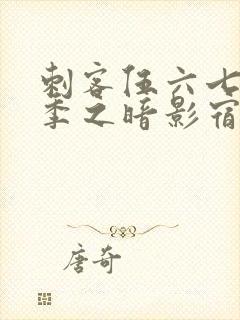 刺客伍六七
季之暗影宿
唐奇